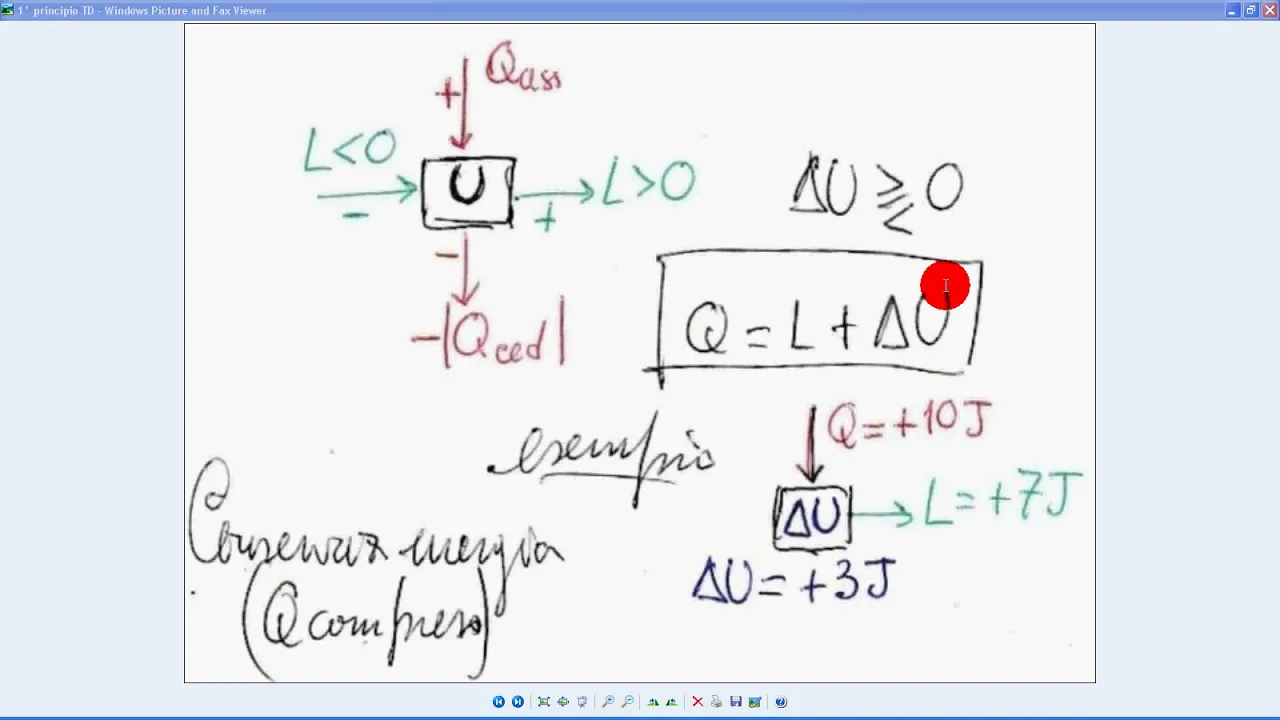 1° principio TD - Windows Picture and Fax Viewer
Qass
+
L<0
U
L>0
-
+
ΔU ⪌ 0
-
-|Qced|
Q = L + ΔU
esempio
Q=+10J
ΔU
L=+7J
ΔU=+3J
Conservaz energia
(Q compreso)